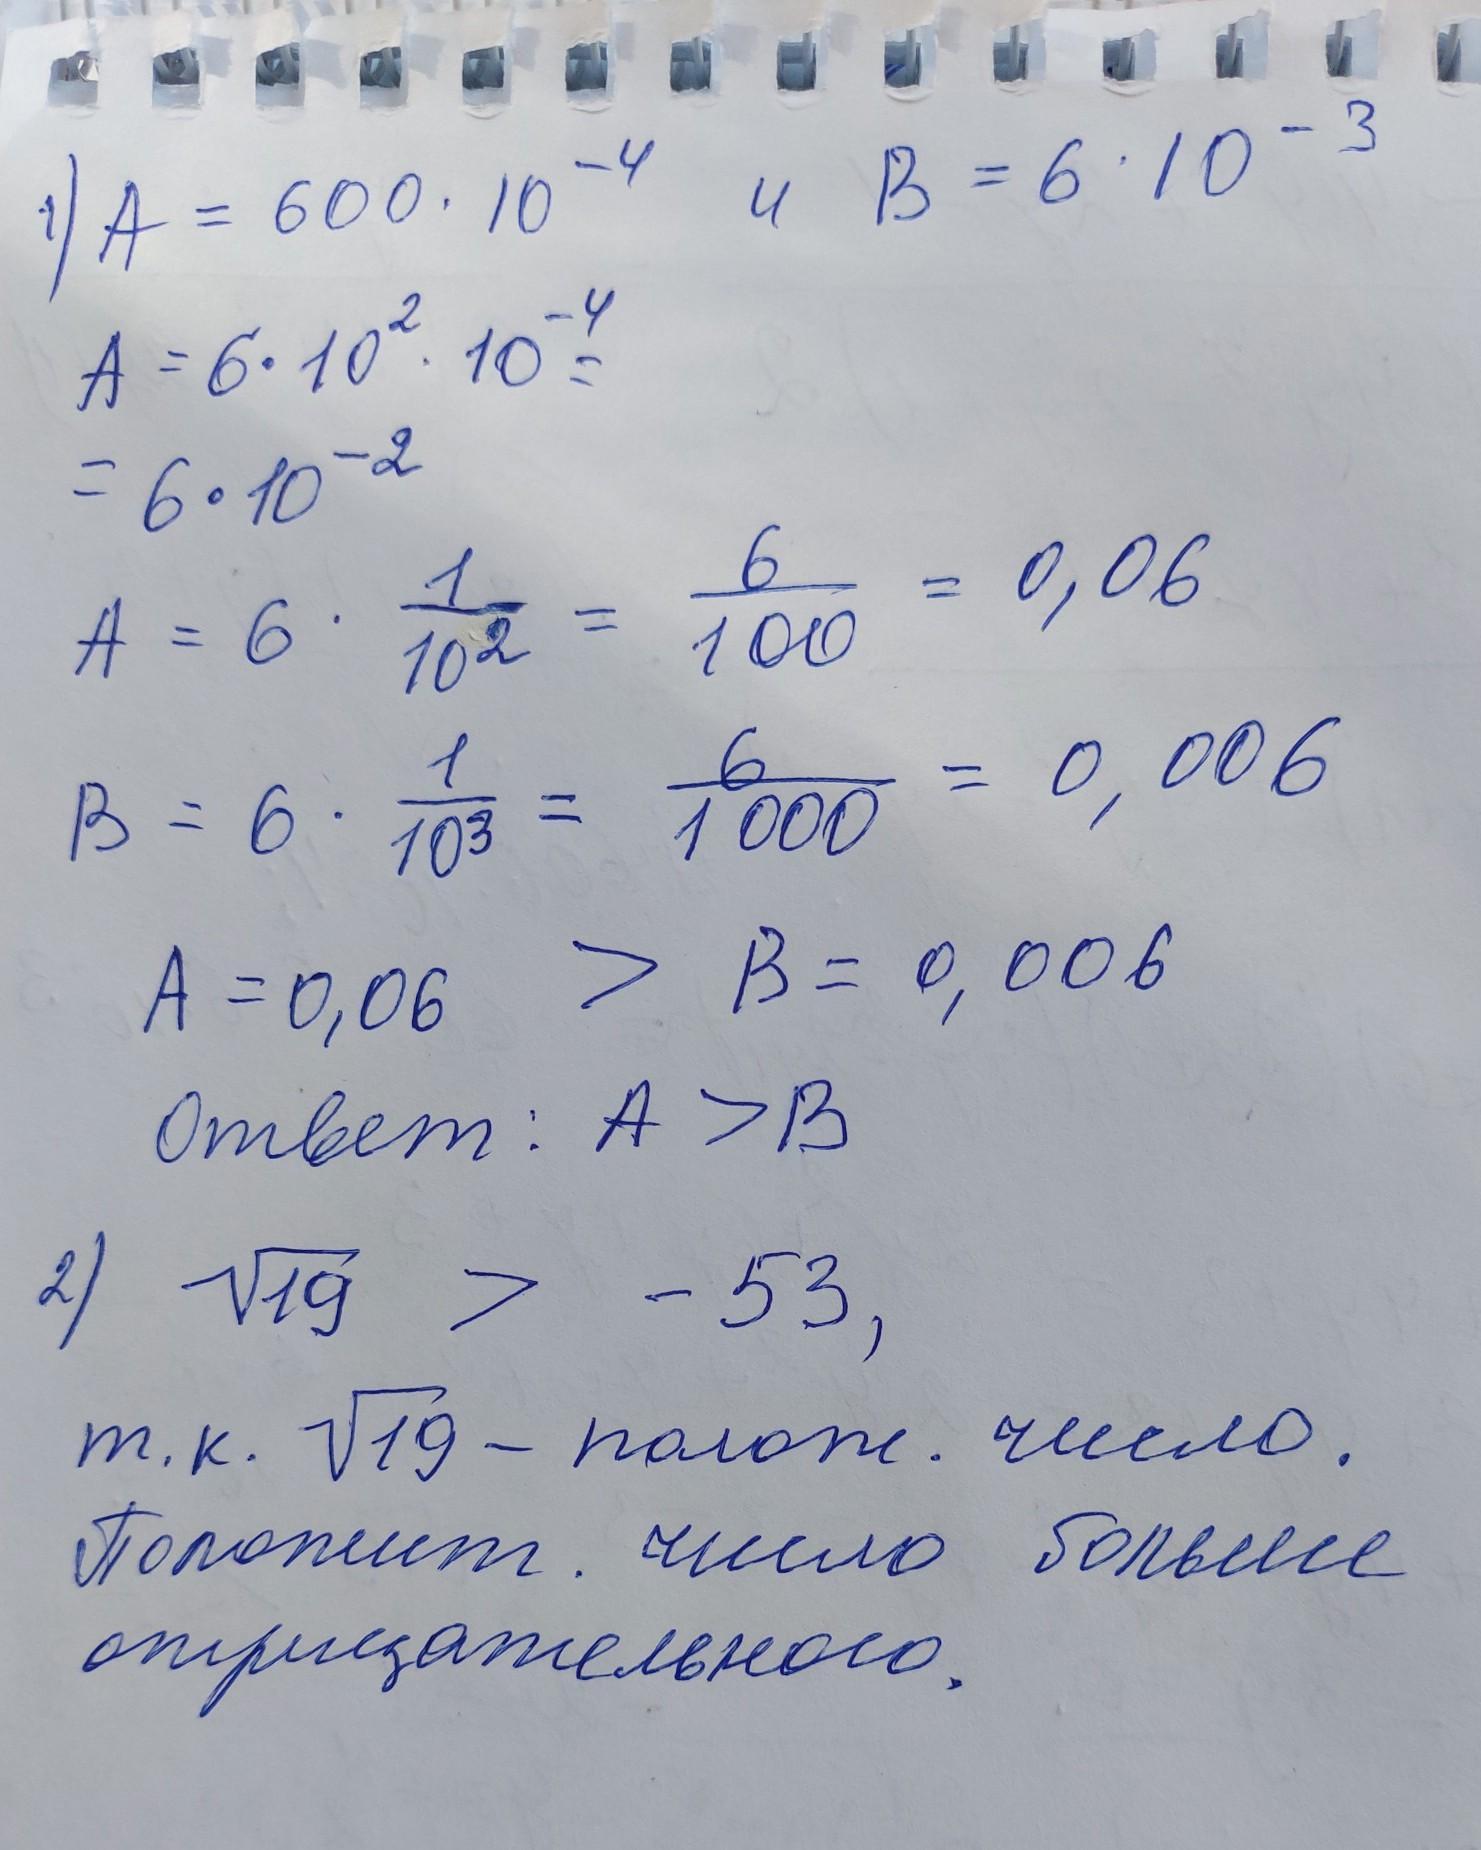 1) A = 600 · 10⁻⁴ и B = 6 · 10⁻³
A = 6 · 10² · 10⁻⁴ =
= 6 · 10⁻²
A = 6 · 1/10² = 6/100 = 0,06
B = 6 · 1/10³ = 6/1000 = 0,006
A = 0,06 > B = 0,006
Ответ: A > B
2) √19 > - 53,
т.к. √19 – полож. число.
Положит. число больше
отрицательного.